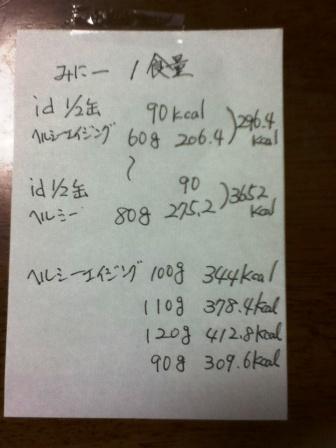 みにー 1食量
id 1/2缶 90kcal
ヘルシーエイジング 60g 206.4 ) 296.4 kcal
〜
id 1/2缶 90
ヘルシー 80g 275.2 ) 365.2 kcal
ヘルシーエイジング 100g 344kcal
110g 378.4kcal
120g 412.8kcal
90g 309.6kcal